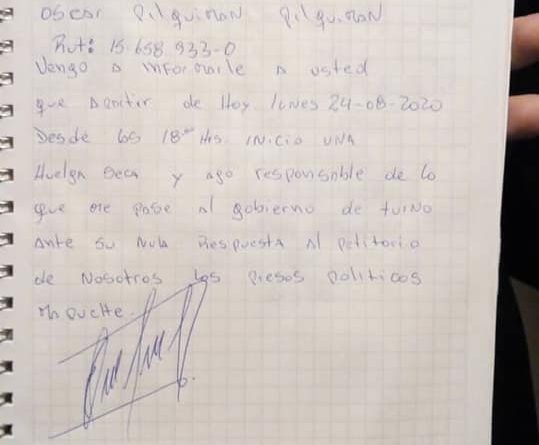 Oscar Pilquiman Pilquiman
Rut: 15.658.933-0
Vengo a informarle a usted
que apartir de Hoy lunes 24-08-2020
Desde las 18⁰⁰ Hrs. inicio una
Huelga Seca y ago responsable de lo
que me pase al gobierno de turno
Ante su Nula Respuesta Al petitorio
de Nosotros los presos politicos
mapuche.